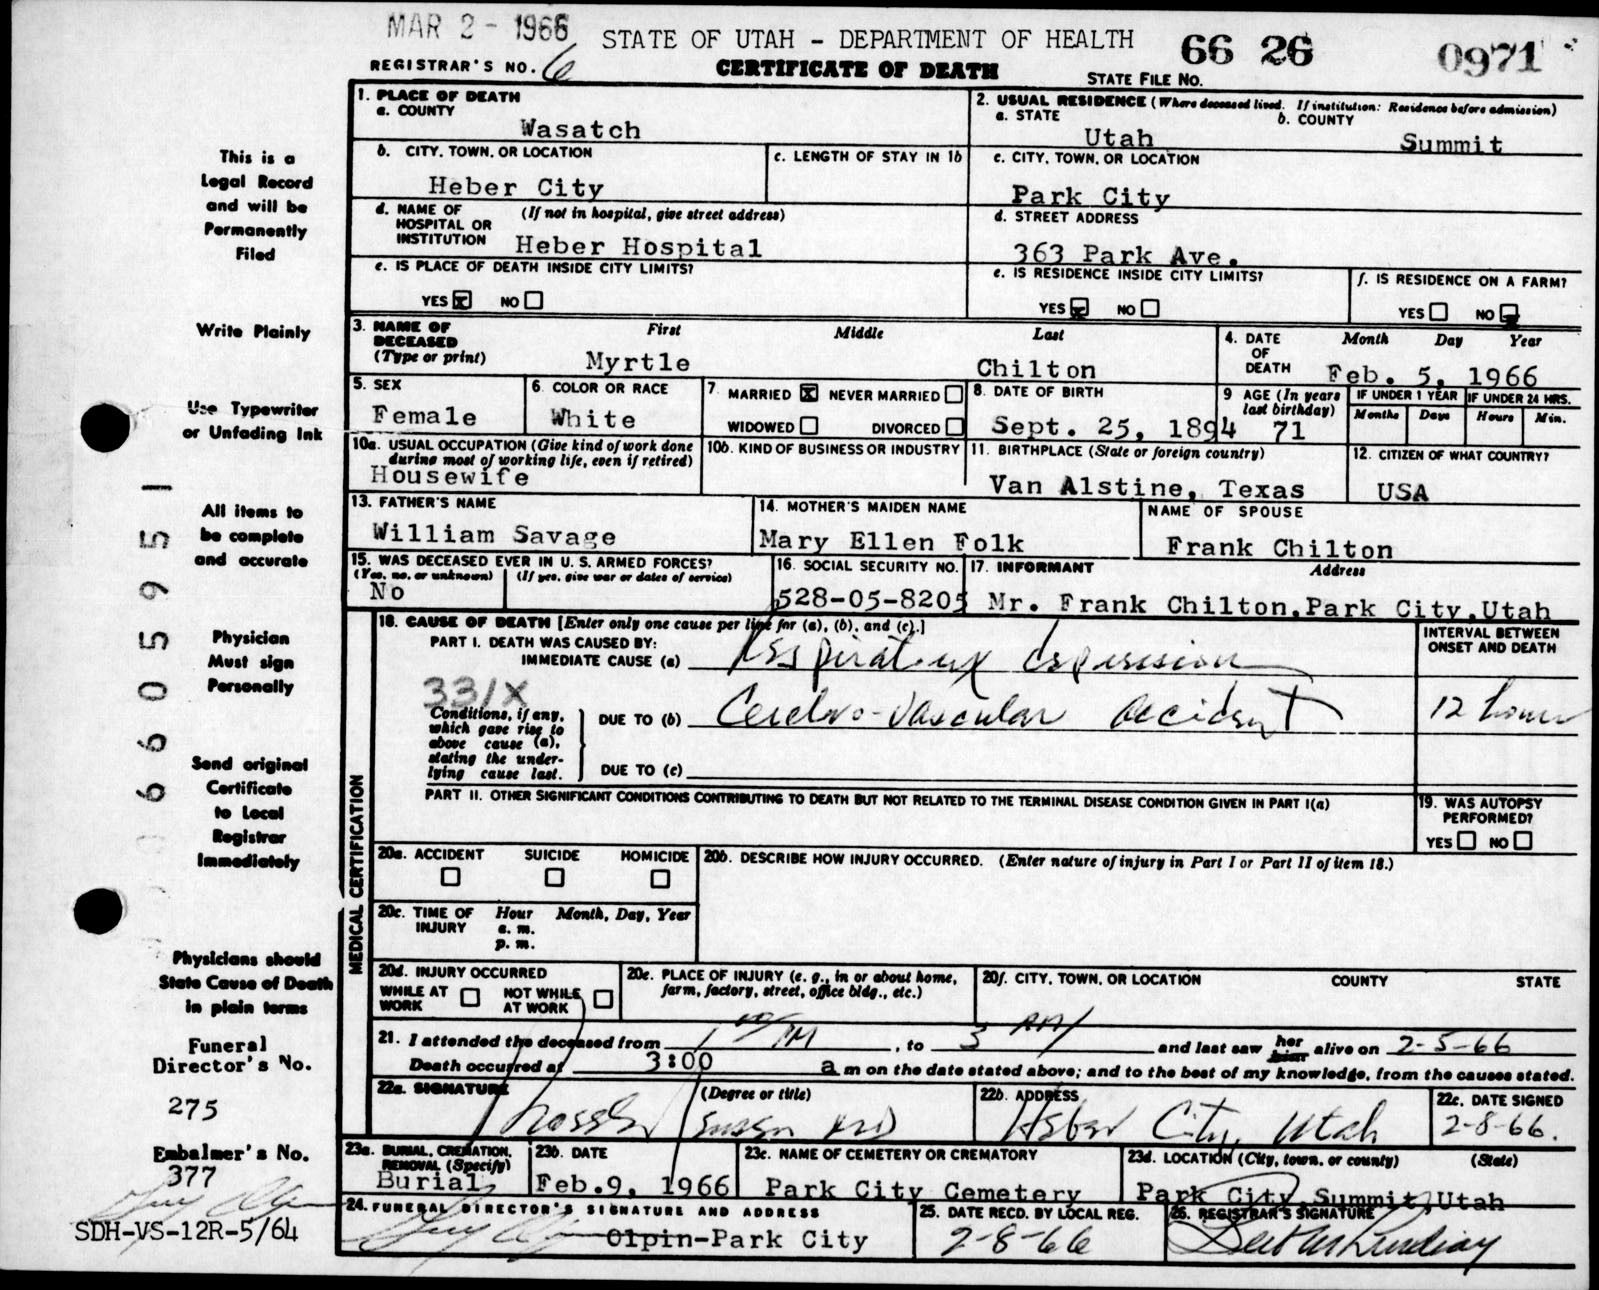 MAR 2 - 1966
STATE OF UTAH - DEPARTMENT OF HEALTH 66 26 0971
REGISTRAR'S NO. 6 CERTIFICATE OF DEATH STATE FILE NO.
1. PLACE OF DEATH
a. COUNTY
Wasatch
2. USUAL RESIDENCE (Where deceased lived. If institution: Residence before admission)
a. STATE b. COUNTY
Utah Summit
b. CITY, TOWN, OR LOCATION
Heber City
c. LENGTH OF STAY IN 1b
c. CITY, TOWN, OR LOCATION
Park City
d. NAME OF HOSPITAL OR INSTITUTION (If not in hospital, give street address)
Heber Hospital
d. STREET ADDRESS
363 Park Ave.
e. IS PLACE OF DEATH INSIDE CITY LIMITS?
YES x NO
e. IS RESIDENCE INSIDE CITY LIMITS?
YES x NO
f. IS RESIDENCE ON A FARM?
YES NO x
3. NAME OF DECEASED (Type or print)
First Middle Last
Myrtle Chilton
4. DATE OF DEATH Month Day Year
Feb. 5, 1966
5. SEX
Female
6. COLOR OR RACE
White
7. MARRIED x NEVER MARRIED
WIDOWED DIVORCED
8. DATE OF BIRTH
Sept. 25, 1894
9 AGE (In years last birthday)
71
IF UNDER 1 YEAR
Months Days
IF UNDER 24 HRS.
Hours Min.
10a. USUAL OCCUPATION (Give kind of work done
during most of working life, even if retired)
Housewife
10b. KIND OF BUSINESS OR INDUSTRY
11. BIRTHPLACE (State or foreign country)
Van Alstine, Texas
12. CITIZEN OF WHAT COUNTRY?
USA
13. FATHER'S NAME
William Savage
14. MOTHER'S MAIDEN NAME
Mary Ellen Folk
NAME OF SPOUSE
Frank Chilton
15. WAS DECEASED EVER IN U. S. ARMED FORCES?
(Yes, no, or unknown) (If yes, give war or dates of service)
No
16. SOCIAL SECURITY NO.
528-05-8205
17. INFORMANT Address
Mr. Frank Chilton, Park City, Utah
MEDICAL CERTIFICATION
18. CAUSE OF DEATH [Enter only one cause per line for (a), (b), and (c).]
PART I. DEATH WAS CAUSED BY:
IMMEDIATE CAUSE (a) Respiratory depression
INTERVAL BETWEEN
ONSET AND DEATH
331X
Conditions, if any,
which gave rise to
above cause (a),
stating the under-
lying cause last.
DUE TO (b) Cerebro-Vascular Accident 12 hours
DUE TO (c)
PART II. OTHER SIGNIFICANT CONDITIONS CONTRIBUTING TO DEATH BUT NOT RELATED TO THE TERMINAL DISEASE CONDITION GIVEN IN PART I(a)
19. WAS AUTOPSY
PERFORMED?
YES NO
20a. ACCIDENT SUICIDE HOMICIDE
20b. DESCRIBE HOW INJURY OCCURRED. (Enter nature of injury in Part I or Part II of item 18.)
20c. TIME OF INJURY Hour Month, Day, Year
a. m.
p. m.
20d. INJURY OCCURRED
WHILE AT WORK NOT WHILE AT WORK
20e. PLACE OF INJURY (e. g., in or about home,
farm, factory, street, office bldg., etc.)
20f. CITY, TOWN, OR LOCATION COUNTY STATE
21. I attended the deceased from 1 00 PM, to 3 AM and last saw her him alive on 2-5-66
Death occurred at 3:00 a m on the date stated above; and to the best of my knowledge, from the causes stated.
22a. SIGNATURE (Degree or title)
22b. ADDRESS
Heber City, Utah
22c. DATE SIGNED
2-8-66.
23a. BURIAL, CREMATION, REMOVAL (Specify)
Burial
23b. DATE
Feb.9, 1966
23c. NAME OF CEMETERY OR CREMATORY
Park City Cemetery
23d. LOCATION (City, town, or county) (State)
Park City, Summit, Utah
24. FUNERAL DIRECTOR'S SIGNATURE AND ADDRESS
Olpin-Park City
25. DATE RECD. BY LOCAL REG.
2-8-66
26. REGISTRAR'S SIGNATURE
This is a
Legal Record
and will be
Permanently
Filed
Write Plainly
Use Typewriter
or Unfading Ink
All items to
be complete
and accurate
Physician
Must sign
Personally
Send original
Certificate
to Local
Registrar
Immediately
Physicians should
State Cause of Death
in plain terms
Funeral
Director's No.
275
Embalmer's No.
377
SDH-VS-12R-5/64
660595